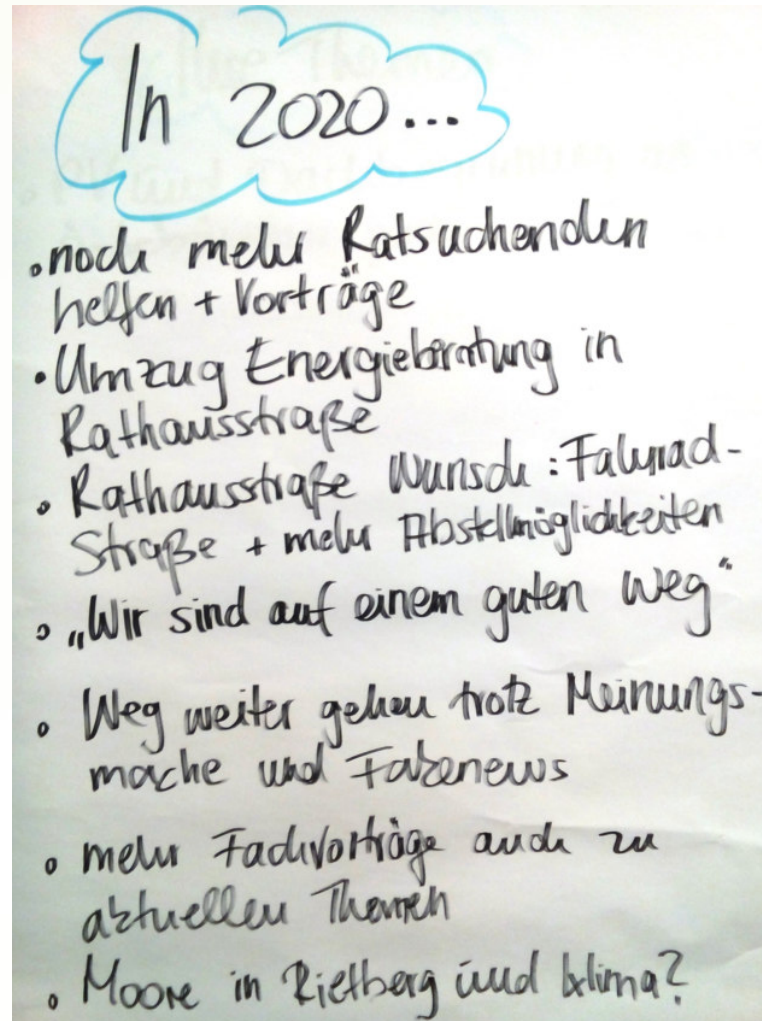 In 2020...
• noch mehr Ratsuchenden
helfen + Vorträge
• Umzug Energieberatung in
Rathausstraße
• Rathausstraße Wunsch: Fahrrad-
Straße + mehr Abstellmöglichkeiten
• „Wir sind auf einem guten Weg“
• Weg weiter gehen trotz Meinungs-
mache und Fakenews
• mehr Fachvorträge auch zu
aktuellen Themen
• Moore in Rietberg und Klima?